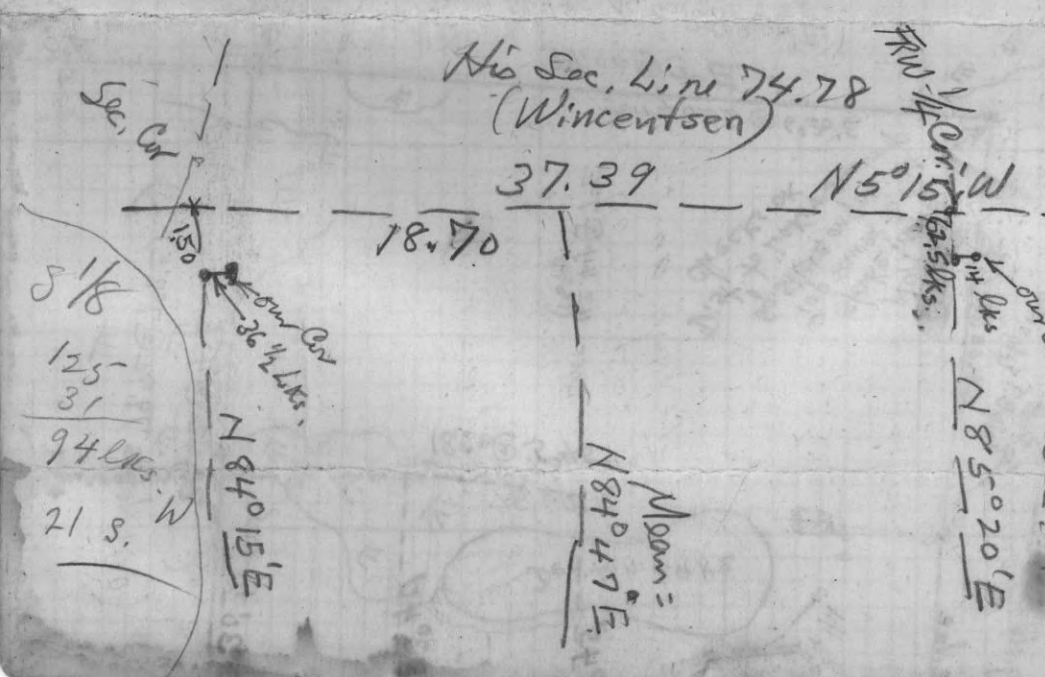 His Sec. Line 74.78
(Wincentsen)
Sec. Cor
FRW 1/4 Cor.
37.39
N5°15'W
18.70
150
62.5 lks.
14 lks
our
our Cor
36 1/2 Lks.
S 1/8
125
31
94 lks. W
21 S.
N84°15'E
Mean =
N84°47'E
N85°20'E